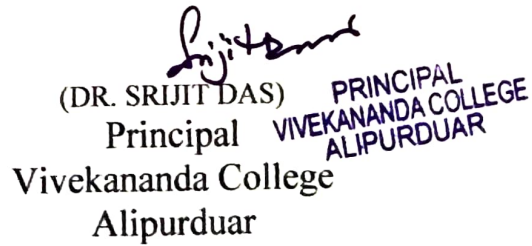 Srijit Das
(DR. SRIJIT DAS)
Principal
Vivekananda College
Alipurduar
PRINCIPAL
VIVEKANANDA COLLEGE
ALIPURDUAR